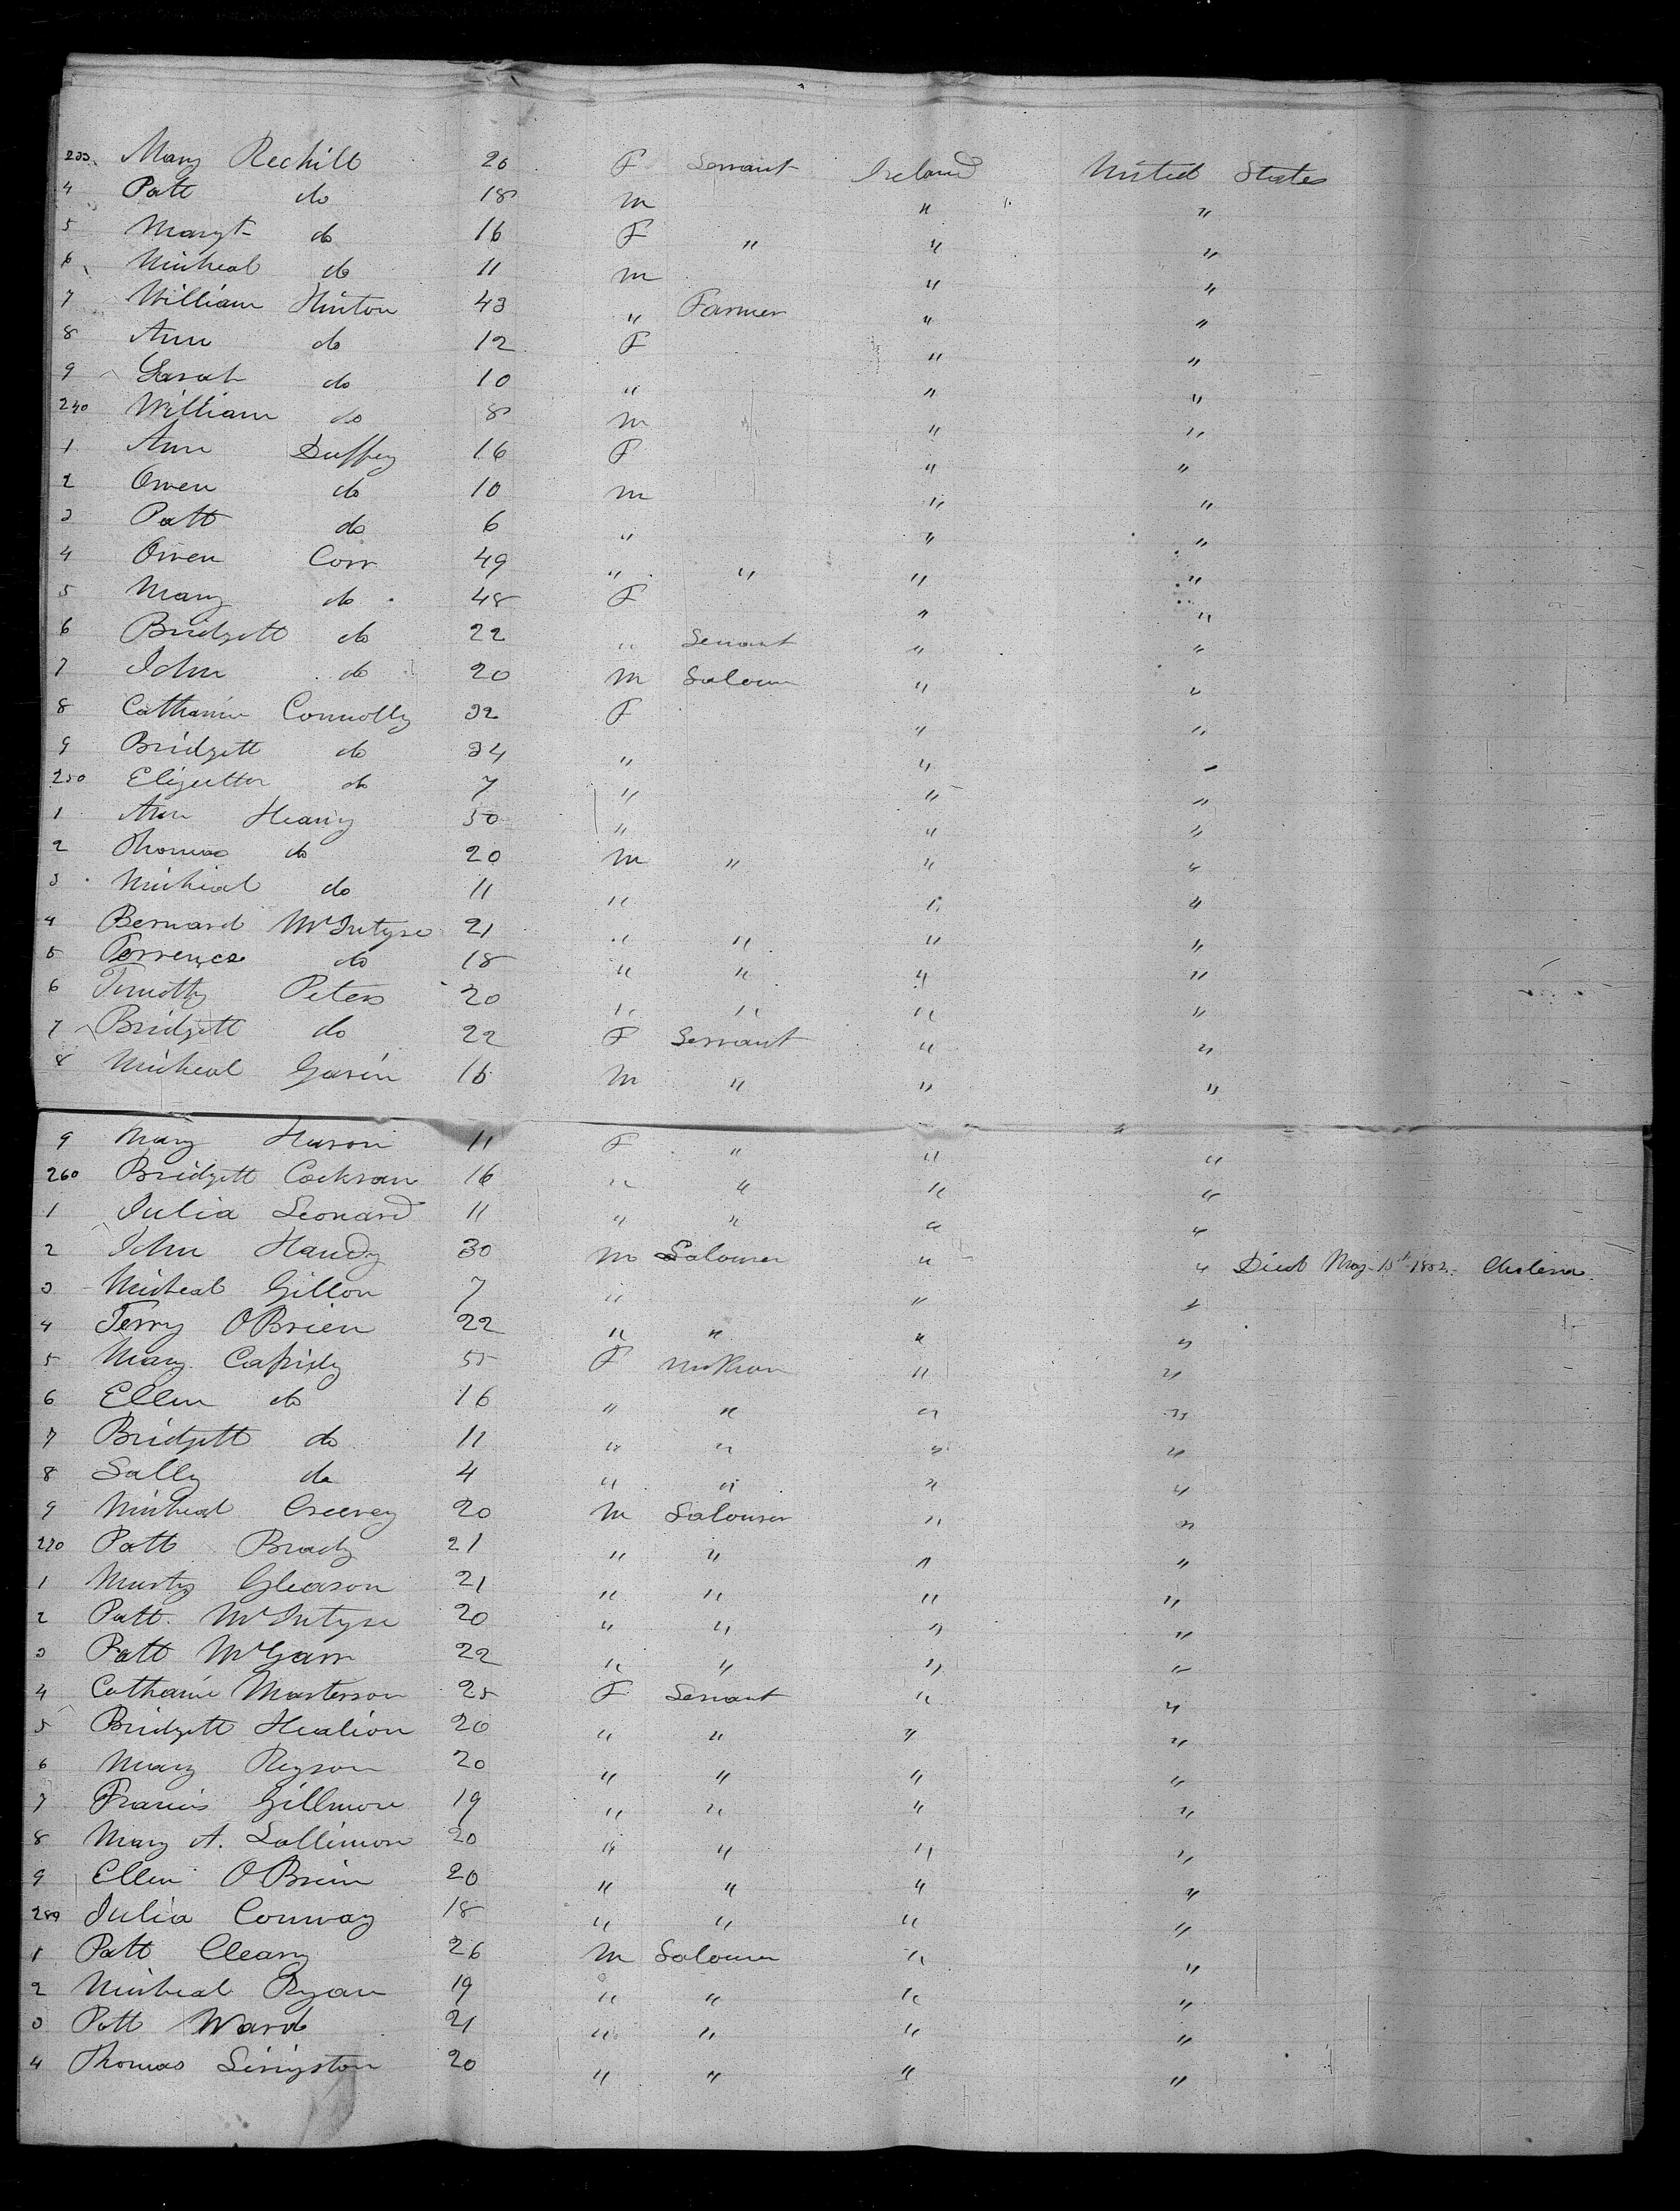 233. Mary Rechill 20 F Servant Ireland United States
4 Patt do 18 m " "
5 Margt do 16 F " " "
6 Micheal do 11 m " "
7 William Hinton 43 " Farmer " "
8 Ann do 12 F " "
9 Sarah do 10 " " "
240 William do 8 m " "
1 Ann Duffey 16 F " "
2 Owen do 10 m " "
3 Patt do 6 " " "
4 Owen Corr 49 " " " "
5 Mary do 48 F " "
6 Bridgett do 22 " Servant " "
7 John do 20 m " "
8 Catharine Connolly 32 F " "
9 Bridgett do 34 " " "
250 do 7 " " "
1 Ann Heany 50 " " "
2 Thomas do 20 m " " "
3 Micheal do 11 " " "
4 Bernard McIntyre 21 " " " "
5 Terrence do 18 " " " "
6 Timothy Peters 20 " " " "
7 Bridgett do 22 F Servant " "
8 Micheal Gavin 16 m " " "
9 Mary 11 F " " "
260 Bridgett Cockran 16 " " " "
1 Julia Leonard 11 " " " "
2 John Handy 30 m Labourer " " Died May 15th 1852. Cholera.
3 Micheal Gillon 7 " " "
4 Terry OBrien 22 " " " "
5 Mary Cassidy 55 F " "
6 Ellen do 16 " " " "
7 Bridgett do 11 " " " "
8 Sally do 4 " " " "
9 Micheal Creevey 20 m Labourer " "
270 Patt Brady 21 " " " "
1 Murty Gleason 21 " " " "
2 Patt. McIntyre 20 " " " "
3 Patt McGarr 22 " " " "
4 Catharine Masterson 25 F Servant " "
5 Bridgett Healion 20 " " " "
6 Mary Ryson 20 " " " "
7 Francis Gillmore 19 " " " "
8 Mary A. Lallimore 20 " " " "
9 Ellen OBrien 20 " " " "
280 Julia Conway 18 " " " "
1 Patt Cleary 26 m Labourer " "
2 Micheal Ryan 19 " " " "
3 Patt Ward 21 " " " "
4 Thomas Livingston 20 " " " "